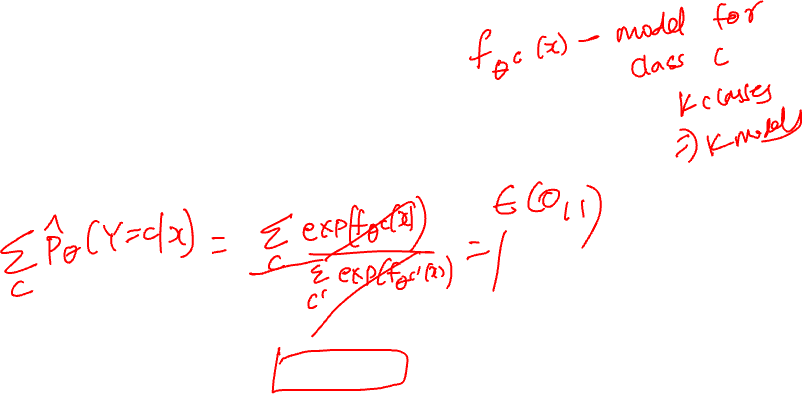 f_{θ^c}(x) – model for
class c
K classes
⇒ K models
∈ (0,1)
∑_c P̂_θ(Y=c|x) = ∑_c exp(f_{θ^c}(x)) / ∑_{c'} exp(f_{θ^{c'}}(x)) = 1